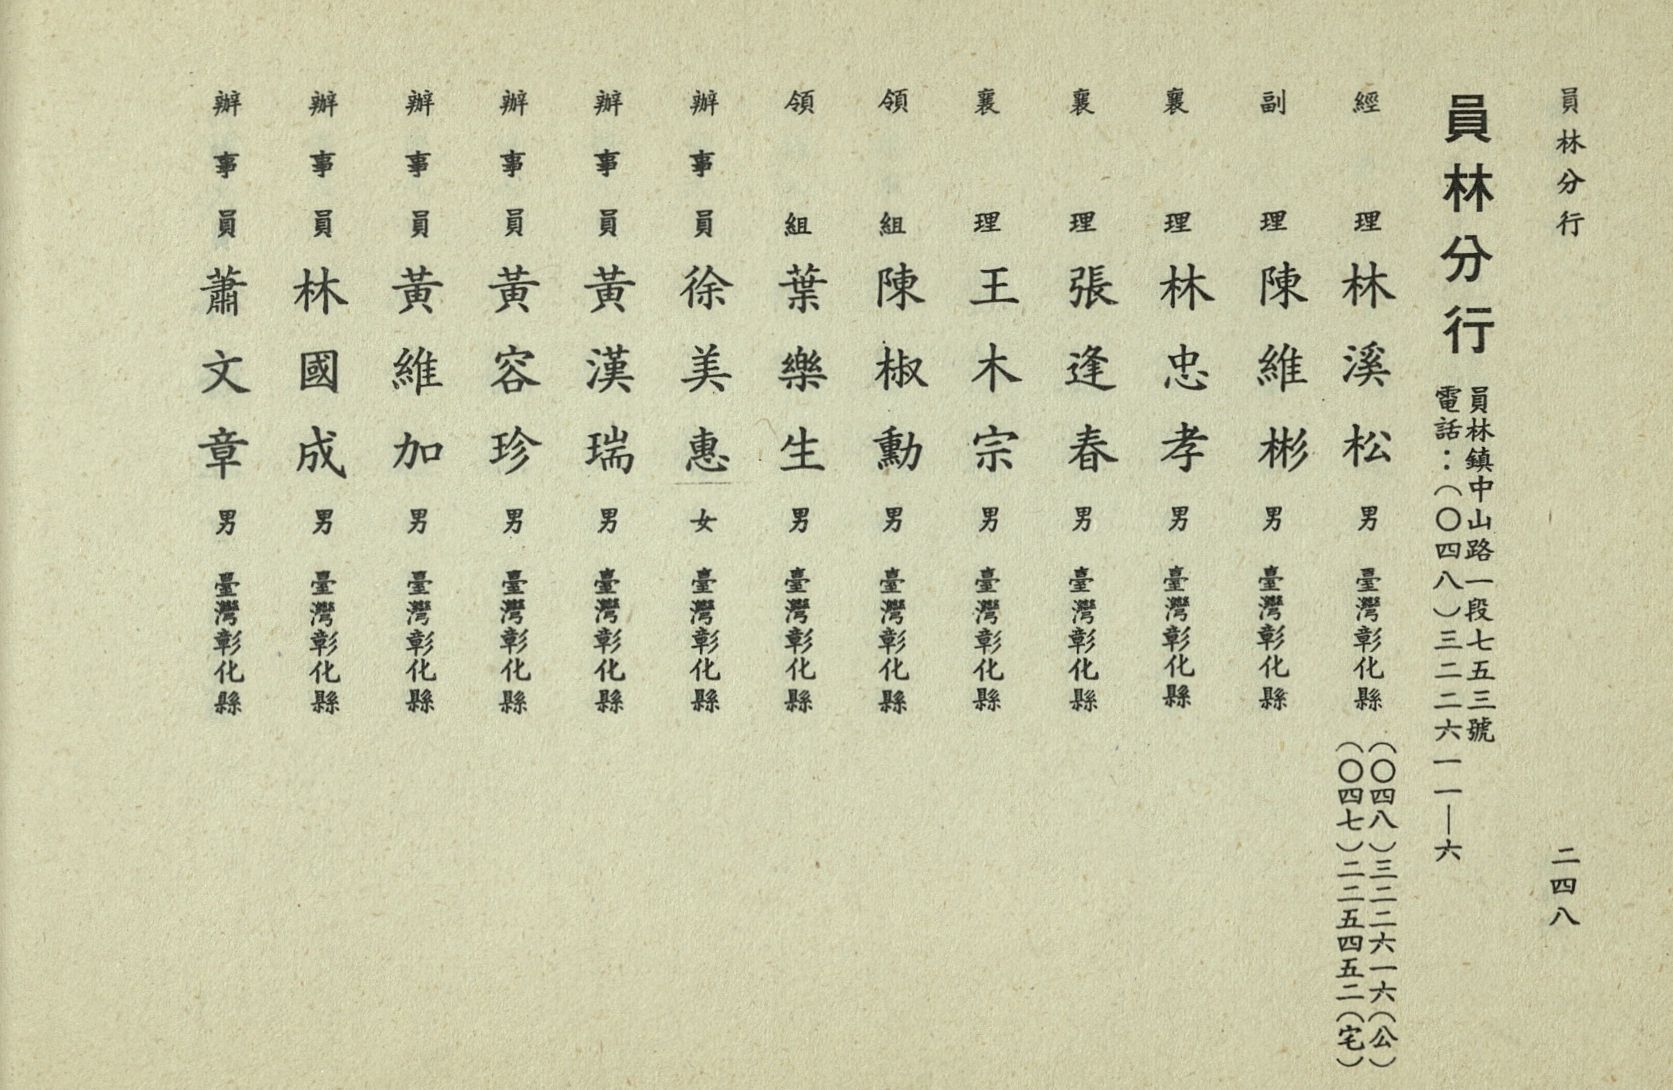 員林分行
二四八
員林分行
員林鎮中山路一段七五三號
電話：（〇四八）三二二六一一—六
經理 林溪松 男 臺灣彰化縣
（〇四八）三二二六一六（公）
（〇四七）二二五四五二（宅）
副理 陳維彬 男 臺灣彰化縣
襄理 林忠孝 男 臺灣彰化縣
襄理 張逢春 男 臺灣彰化縣
襄理 王木宗 男 臺灣彰化縣
領組 陳椒勳 男 臺灣彰化縣
領組 葉樂生 男 臺灣彰化縣
辦事員 徐美惠 女 臺灣彰化縣
辦事員 黃漢瑞 男 臺灣彰化縣
辦事員 黃容珍 男 臺灣彰化縣
辦事員 黃維加 男 臺灣彰化縣
辦事員 林國成 男 臺灣彰化縣
辦事員 蕭文章 男 臺灣彰化縣